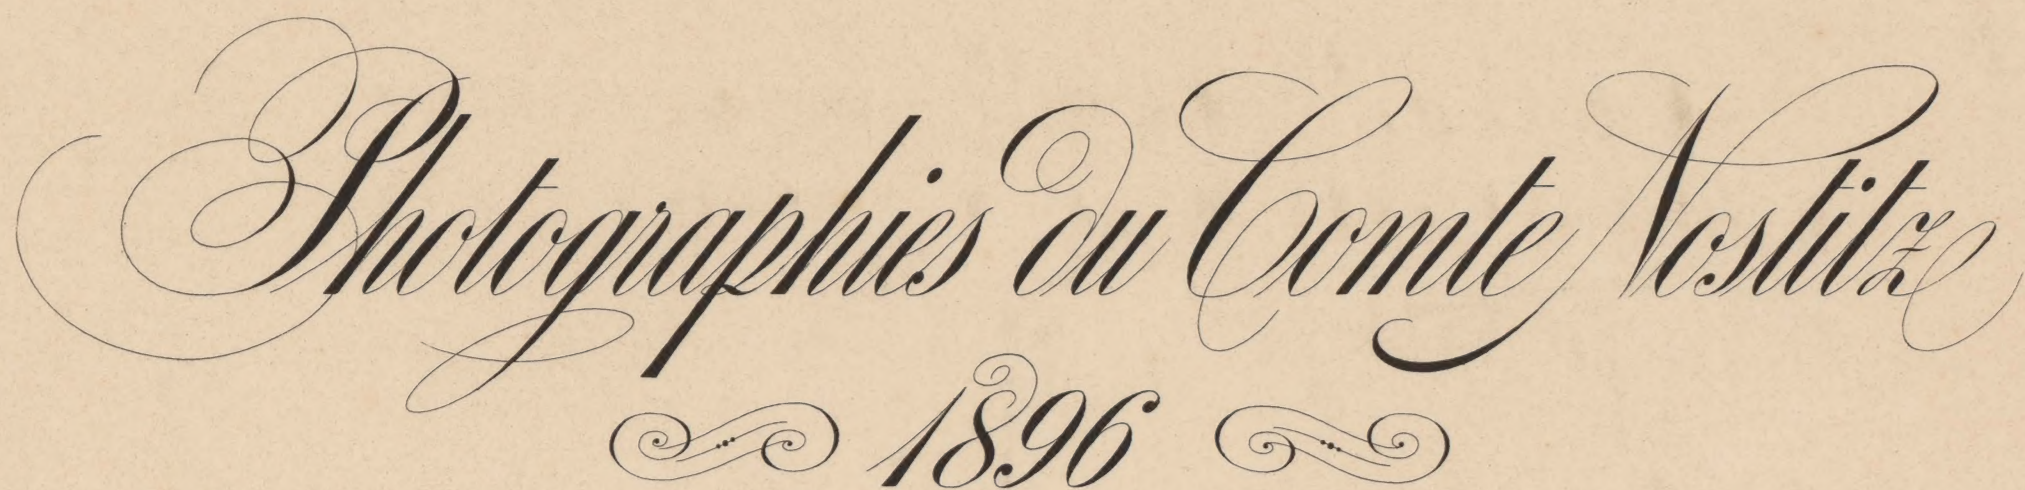 Photographies du Comte Nostitz
1896